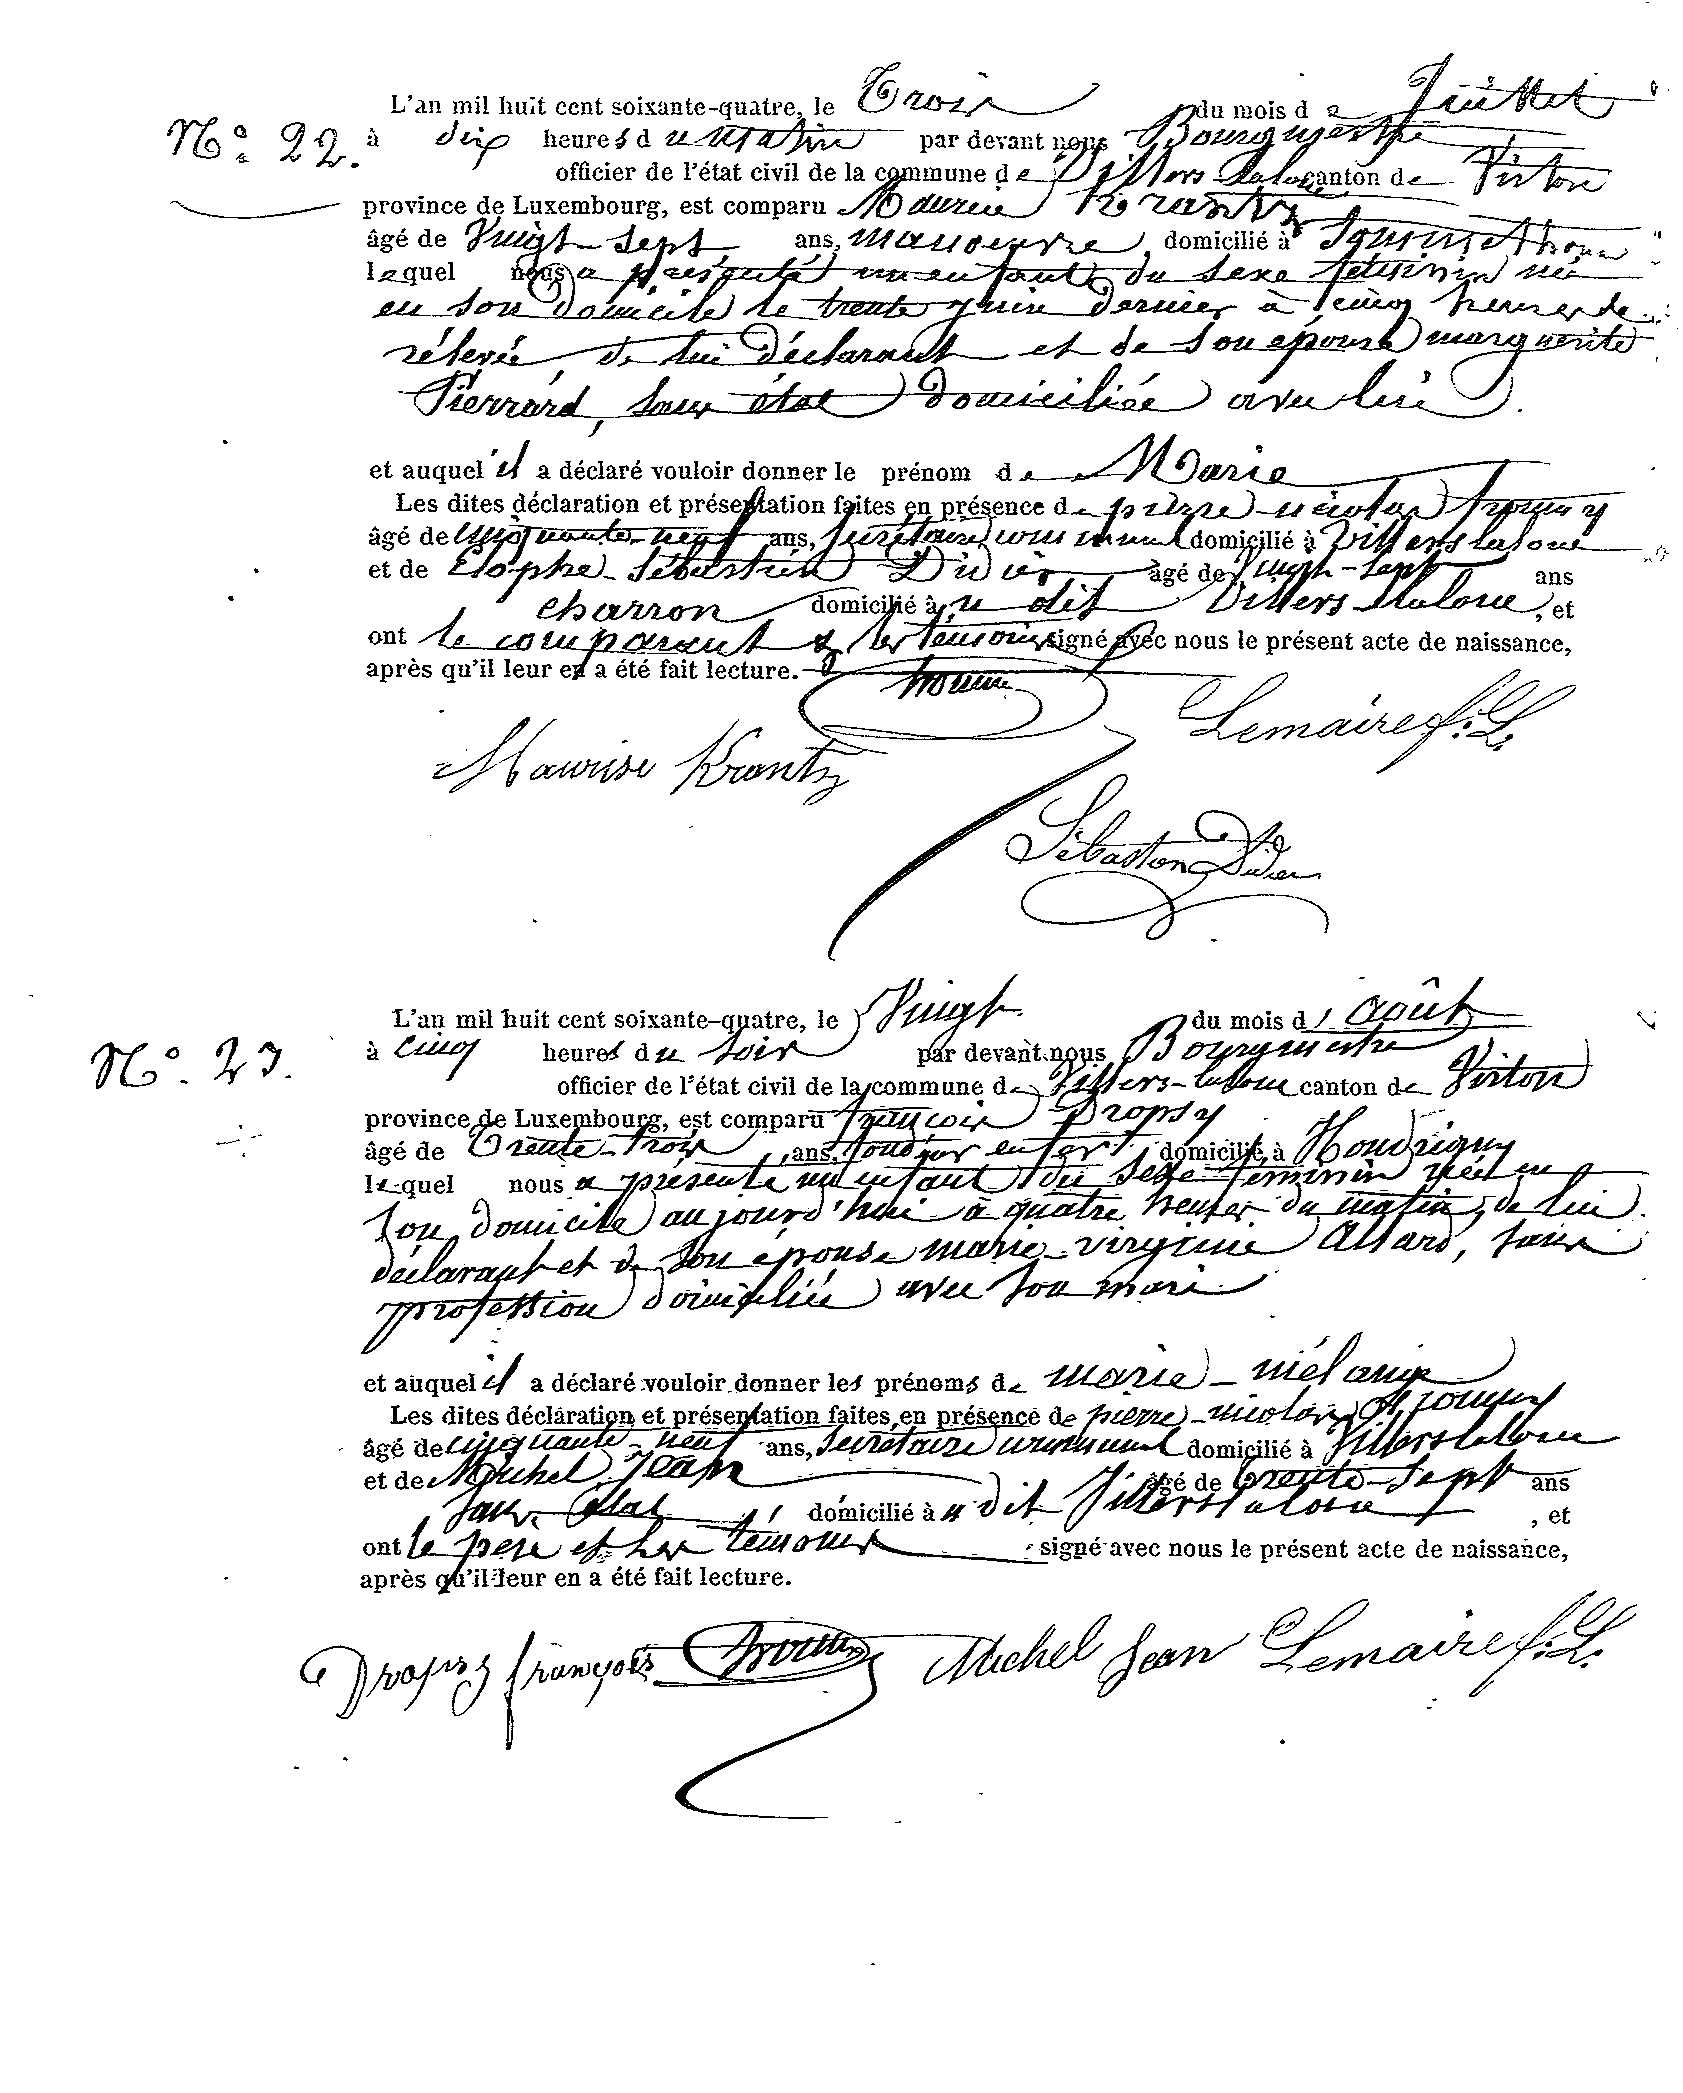 L'an mil huit cent soixante-quatre, le Trois du mois de Juillet
N.° 22. à dix heures du matin par devant nous Bourgmestre
officier de l'état civil de la commune de Villers-Laloue canton de Virton
province de Luxembourg, est comparu Maurice Krantz
âgé de Vingt-sept ans, manoeuvre, domicilié à
lequel nous a présenté un enfant du sexe féminin né
en son domicile le trente juin dernier à cinq heures de
rélevée de lui déclarant et de son épouse marguerite
Pierrard, sans état domiciliée avec lui.
et auquel il a déclaré vouloir donner le prénom de Marie
Les dites déclaration et présentation faites en présence de pierre-nicolas
âgé de cinquante-neuf ans, secrétaire communal domicilié à Villerslaloue
et de Elophe-Sébastien Didier âgé de vingt-sept ans
charron domicilié à u dit Villers-laloue, et
ont le comparant & les témoins signé avec nous le présent acte de naissance,
après qu'il leur en a été fait lecture.
Lemaire f. L.
Maurise Krantz
Sébastien Didier
L'an mil huit cent soixante-quatre, le Vingt du mois d'août
N.° 23. à cinq heures du soir par devant nous Bourgmestre
officier de l'état civil de la commune de Villers-laloue canton de Virton
province de Luxembourg, est comparu françois Dropsy
âgé de Trente-trois ans, fondeur en fer domicilié à Houdrigny
lequel nous a présenté un enfant du sexe féminin née en
son domicile aujourd'hui à quatre heures du matin, de lui
déclarant et de son épouse marie-virginie Allard, sans
profession domiciliée avec son mari
et auquel il a déclaré vouloir donner les prénoms de marie-mélanie
Les dites déclaration et présentation faites en présence de pierre-nicolas
âgé de cinquante-neuf ans, secrétaire communal domicilié à Villerslaloue
et de Michel Jean âgé de trente-sept ans
sans état domicilié à u dit Villerslaloue, et
ont le père et les témoins signé avec nous le présent acte de naissance,
après qu'il leur en a été fait lecture.
Dropsy françois Michel Jean Lemaire f. L.